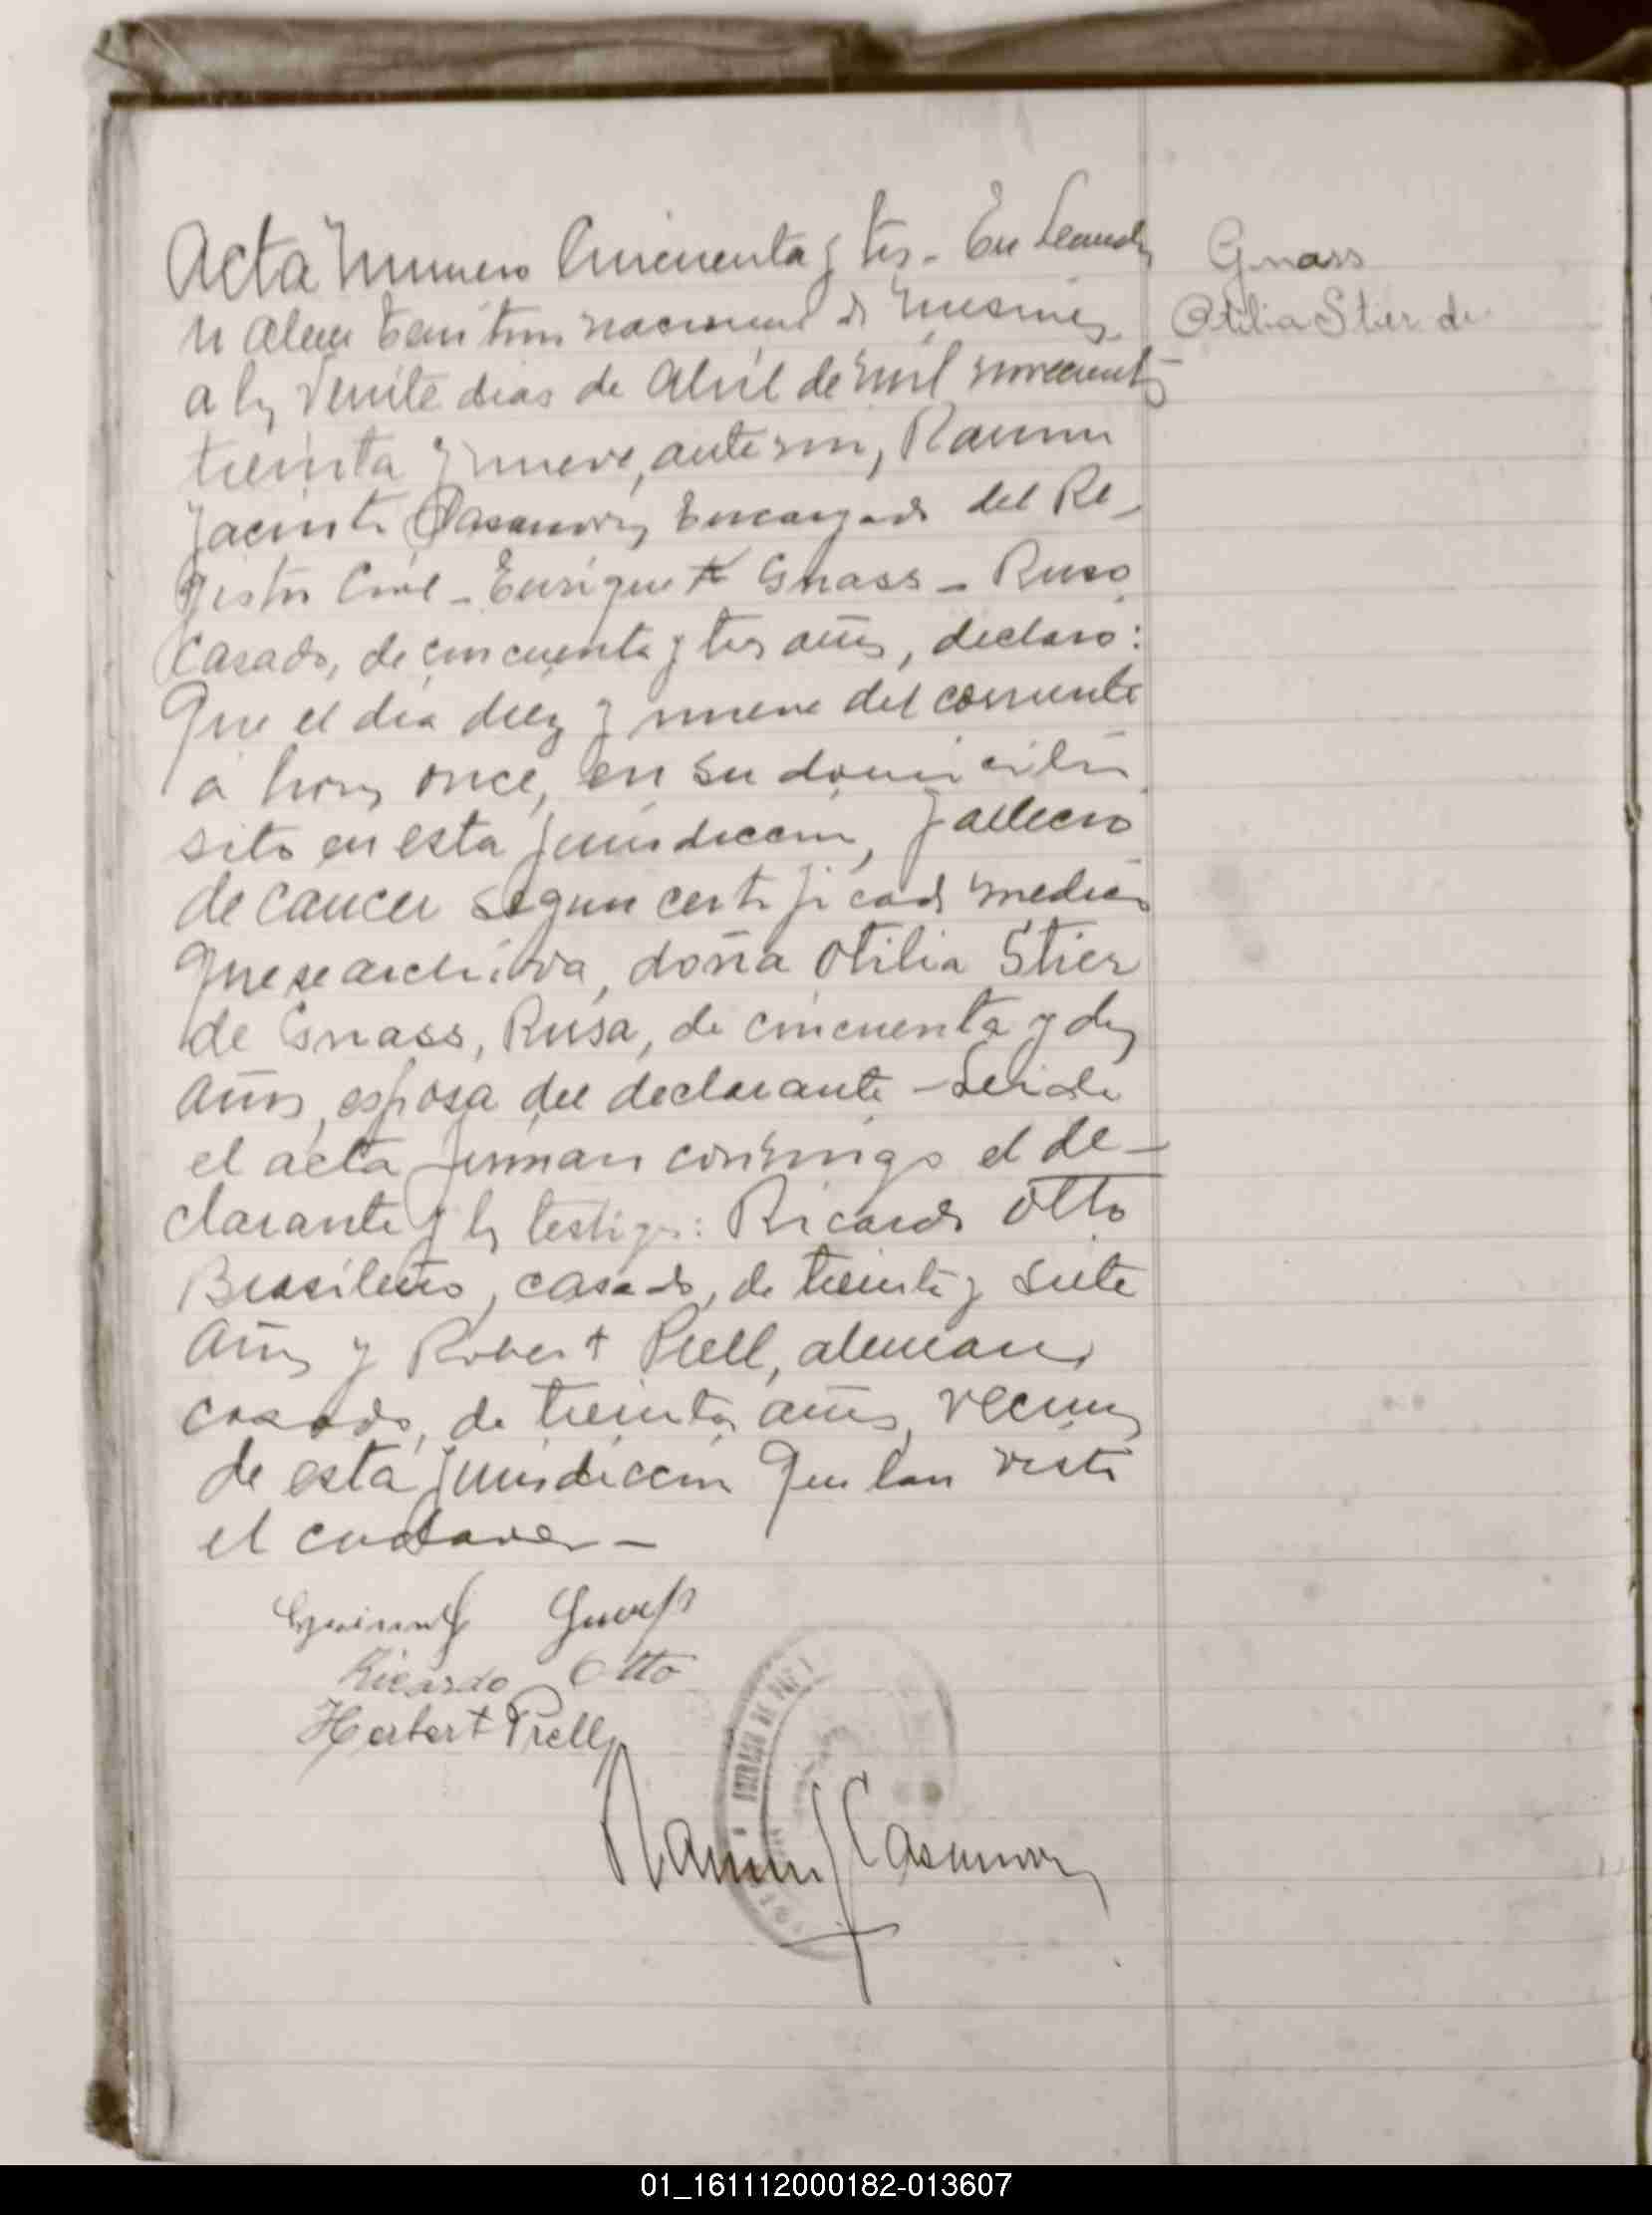 Acta Numero Cincuenta y tres - En Leandro
N Alem Territorio nacional de Misiones
a los veinte dias de Abril de mil novecientos
treinta y nueve, ante mi, Ramon
Jacinto Casanova Encargado del Re-
gistro Civil - Enrique Gnass - Ruso
casado, de cincuenta y tres años, declaro:
Que el dia diez y nueve del corriente
a horas once, en su domicilio
sito en esta jurisdiccion, fallecio
de cancer segun certificado medico
que se archiva, doña Otilia Stier
de Gnass, Rusa, de cincuenta y dos
años, esposa del declarante - Leida
el acta firman conmigo el de-
clarante y los testigos: Ricardo Otto
Brasileño, casado, de treinta y siete
años y Robert Prell, aleman,
casado, de treinta años, vecinos
de esta jurisdiccion que han visto
el cadaver -
Gnass
Otilia Stier de
Ricardo Otto
Herbert Prell
Ramon J Casanova
01_161112000182-013607